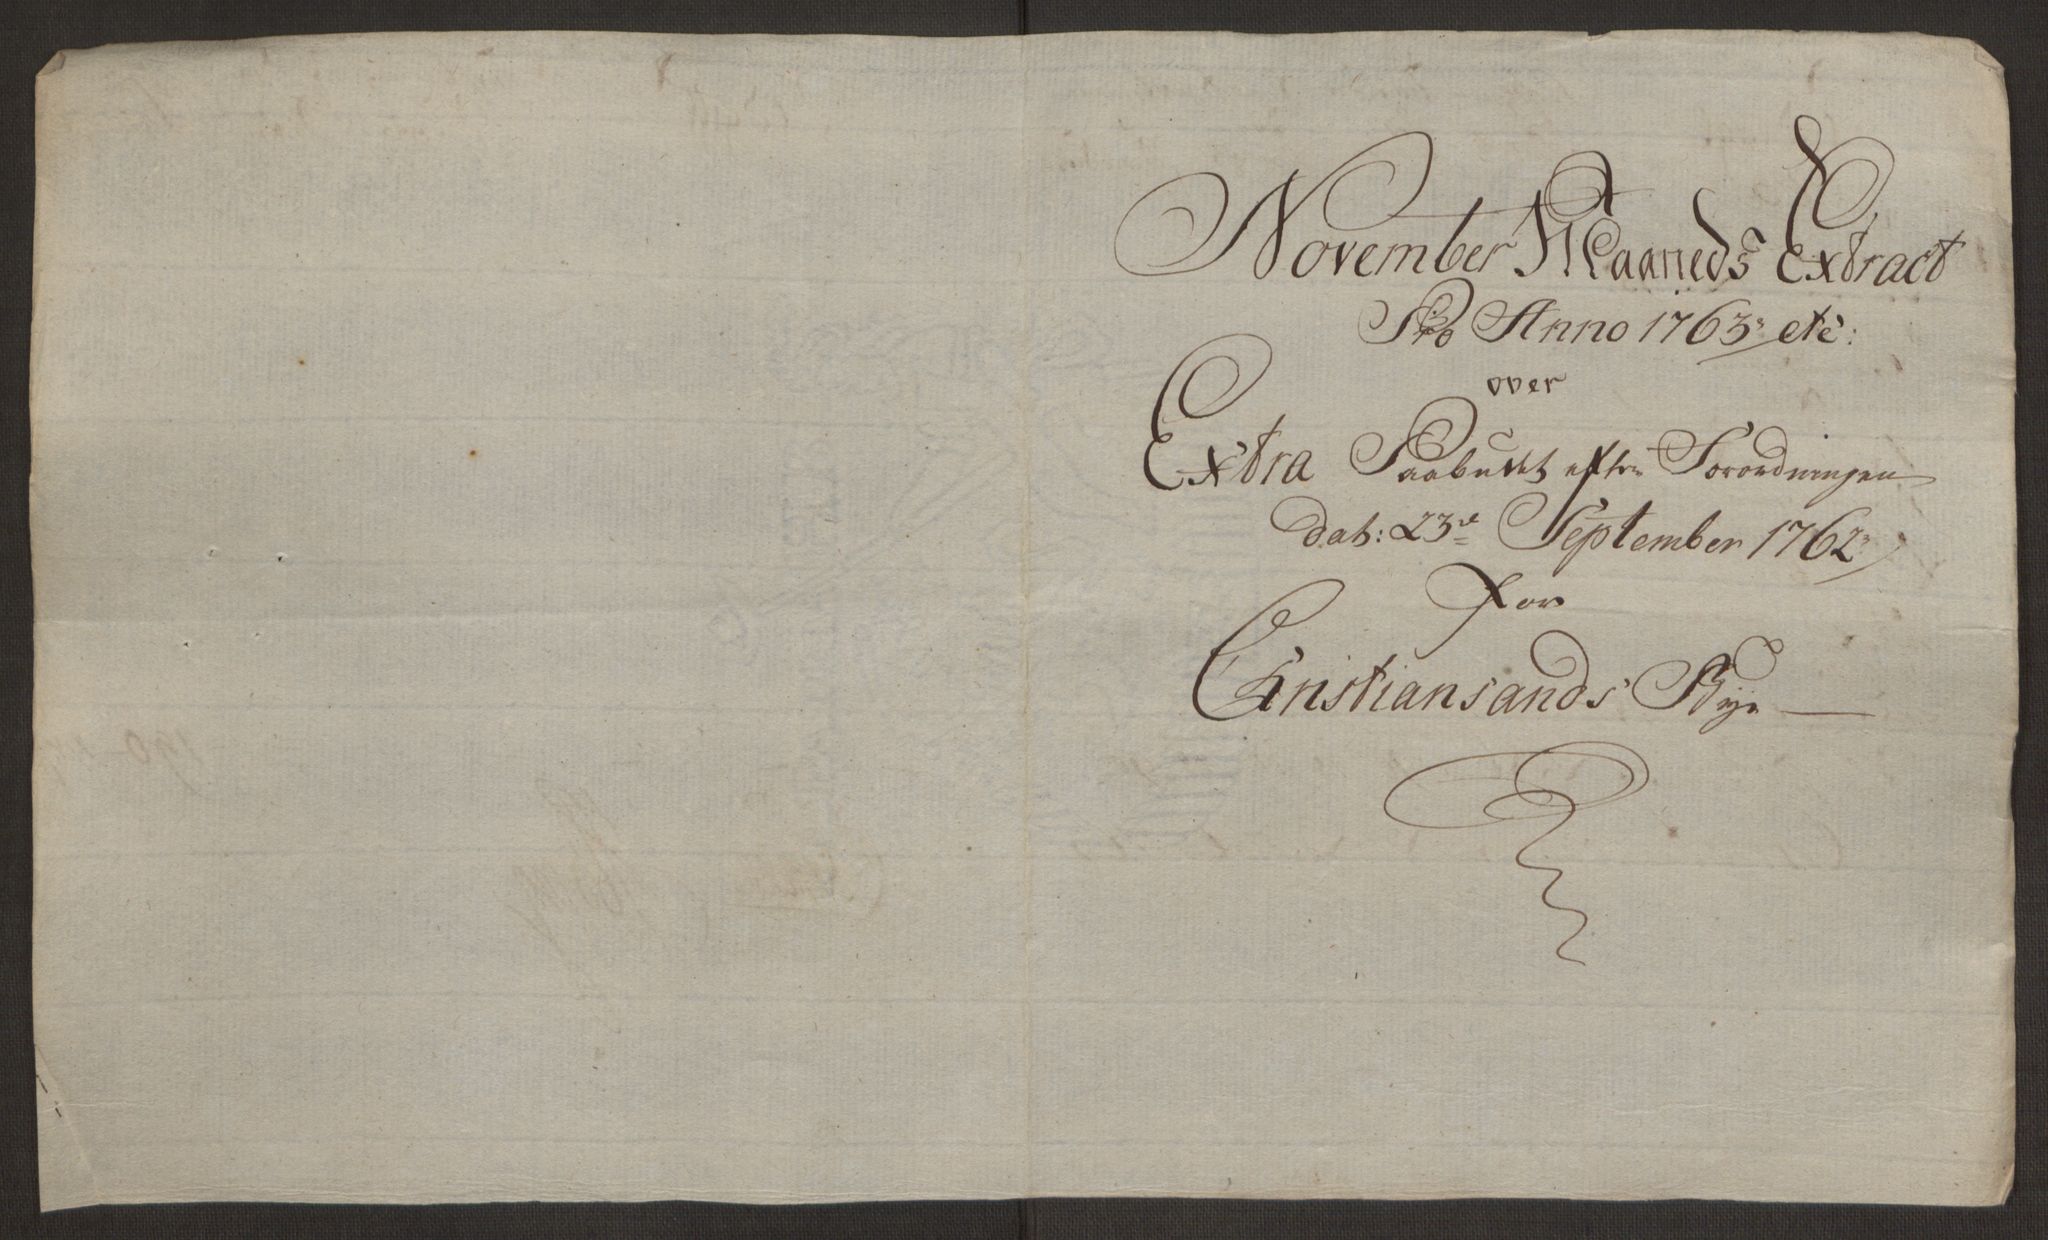 November Maaneds Extract
Pro Anno 1763 etc:
over
Extra Paabudet efter Forordningen
dat: 23de September 1762
for
Christiansands Bye